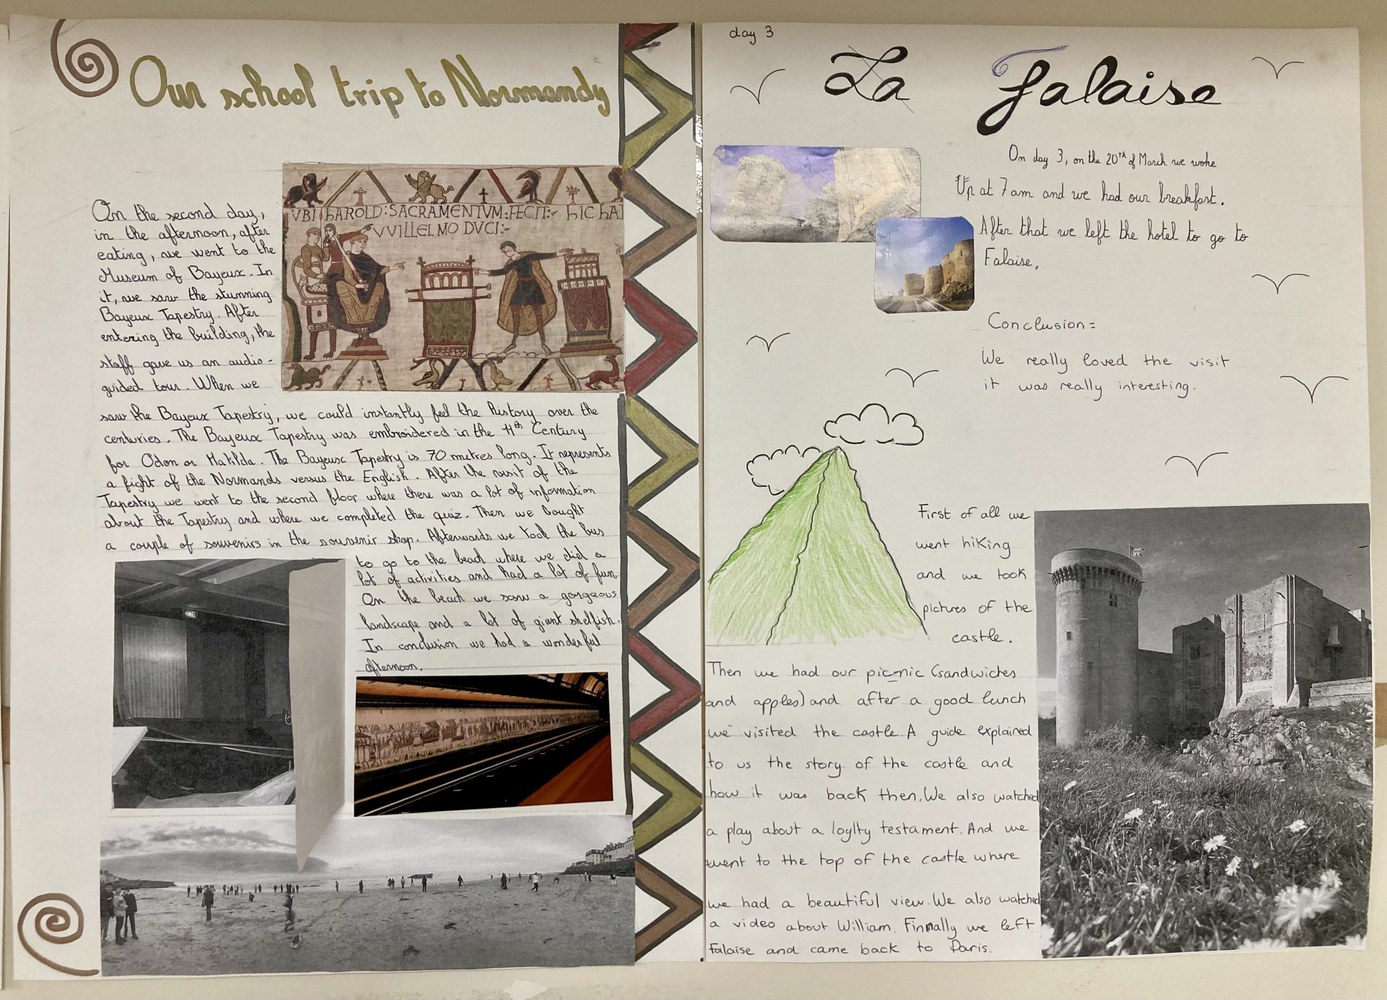 Our school trip to Normandy
On the second day,
in the afternoon, after
eating, we went to the
Museum of Bayeux. In
it, we saw the stunning
Bayeux Tapestry. After
entering the building, the
staff gave us an audio-
guided tour. When we
saw the Bayeux Tapestry, we could instantly feel the history over the
centuries. The Bayeux Tapestry was embroidered in the 11th Century
for Odon or Matilda. The Bayeux Tapestry is 70 metres long. It represents
a fight of the Normands versus the English. After the visit of the
Tapestry we went to the second floor where there was a lot of information
about the Tapestry and where we completed the quiz. Then we bought
a couple of souvenirs in the souvenir shop. Afterwards we took the bus
to go to the beach where we did a
lot of activities and had a lot of fun
On the beach we saw a gorgeous
landscape and a lot of giant shelfish.
In conclusion we had a wonderful
afternoon.
VBI hAROLD:SACRAMENTVM:FECIT:- hIC hA
VVILLELMO DVCI:-
day 3
La falaise
On day 3, on the 20th of March we woke
Up at 7am and we had our breakfast.
After that we left the hotel to go to
Falaise.
Conclusion:
We really loved the visit
it was really interesting.
First of all we
went hiking
and we took
pictures of the
castle.
Then we had our picnic (sandwiches
and apples) and after a good lunch
we visited the castle. A guide explained
to us the story of the castle and
how it was back then, We also watched
a play about a loylty testament. And we
went to the top of the castle where
we had a beautiful view. We also watched
a video about William. Finnally we left
falaise and came back to Paris.